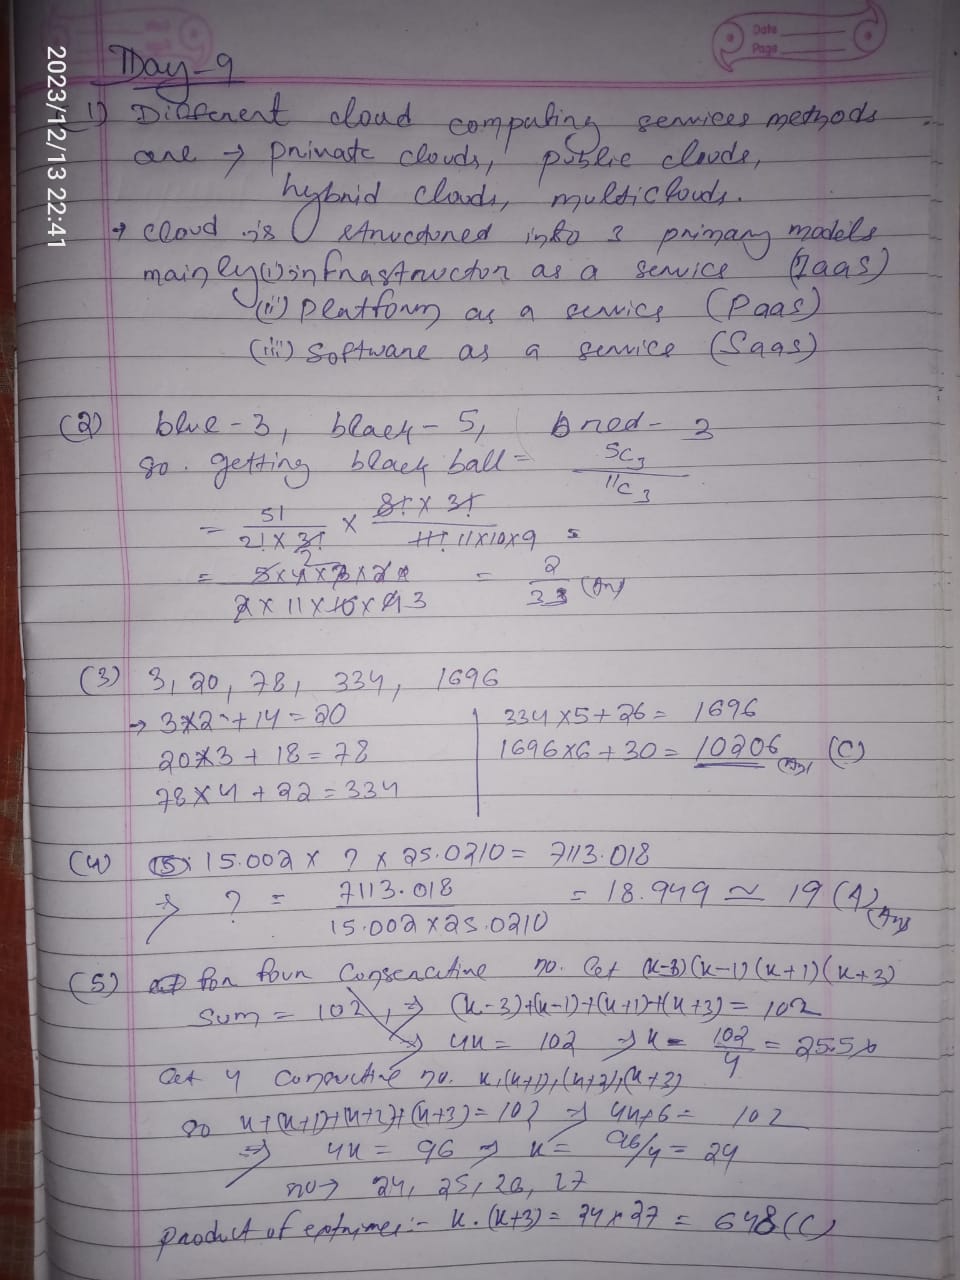 2023/12/13 22:41
Date
Page
Day-9
1) Different cloud computing services methods
are → private clouds, public clouds,
hybrid clouds, multiclouds.
→ cloud is structured into 3 primary models
mainly (i) infrastructor as a service (Iaas)
(ii) platform as a service (Paas)
(iii) Software as a service (Saas)
(2) blue - 3, black - 5, red - 3
so. getting black ball = 5C3 / 11C3
= 5! / 2! × 3! × 8! × 3! / 11! 11×10×9
= 5×4×3×2 / 2×11×10×9 3 = 2/33 (Ans)
(3) 3, 20, 78, 334, 1696
→ 3×2 + 14 = 20
20×3 + 18 = 78
78×4 + 22 = 334
334×5 + 26 = 1696
1696×6 + 30 = 10206 (Ans) (C)
(4) 15.002 × ? × 25.0210 = 7113.018
⇒ ? = 7113.018 / 15.002×25.0210 = 18.949 ≃ 19 (A) Ans
(5) for four Consecutive no. let (x-3)(x-1)(x+1)(x+3)
Sum = 102, ⇒ (x-3)+(x-1)+(x+1)+(x+3) = 102
⇒ 4x = 102 ⇒ x = 102/4 = 25.5
let 4 no. x,(x+1),(x+2),(x+3)
so x+(x+1)+(x+2)+(x+3) = 102 ⇒ 4x+6 = 102
⇒ 4x = 96 ⇒ x = 96/4 = 24
no → 24, 25, 26, 27
product of extrimes:- x.(x+3) = 24×27 = 648 (C)